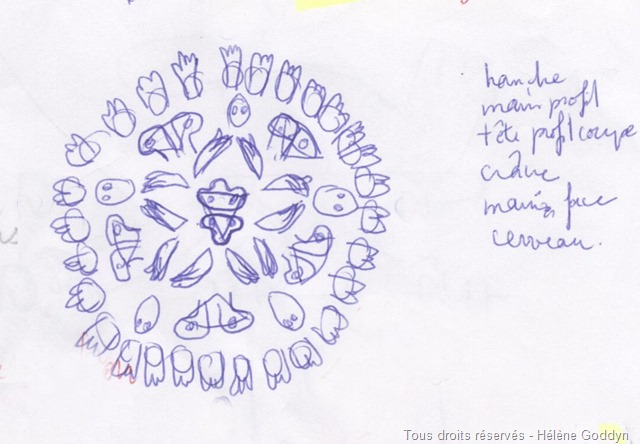 hanche
main profil
tête profil coupe
crâne
mains face
cerveau.
Tous droits réservés - Hélène Goddyn